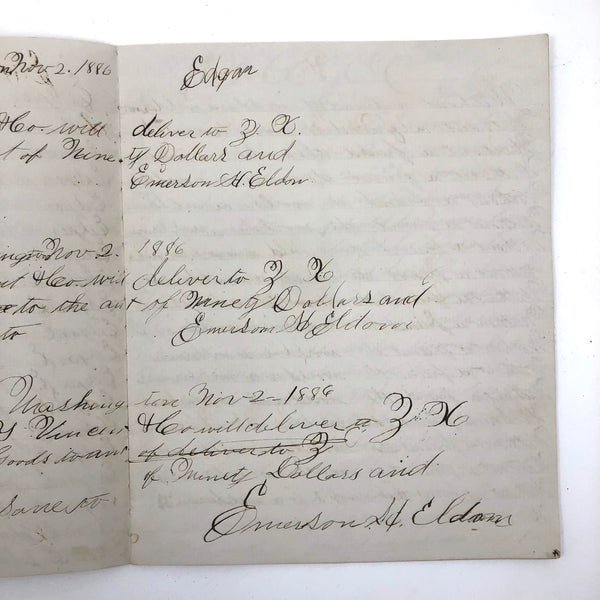 Nov 2. 1886 Edgar
& Co. will deliver to Z. X.
t of Ninety Dollars and
Emerson H. Eldon.
Nov 2. 1886
& Co will deliver to Z X
to the amt of Ninety Dollars and
to Emerson H. Eldon
Washington Nov 2 - 1886
Y Vincent & Co will deliver to Z X
Goods to amt of deliver to Z
of Ninety Dollars and
Same to
Emerson H. Eldon